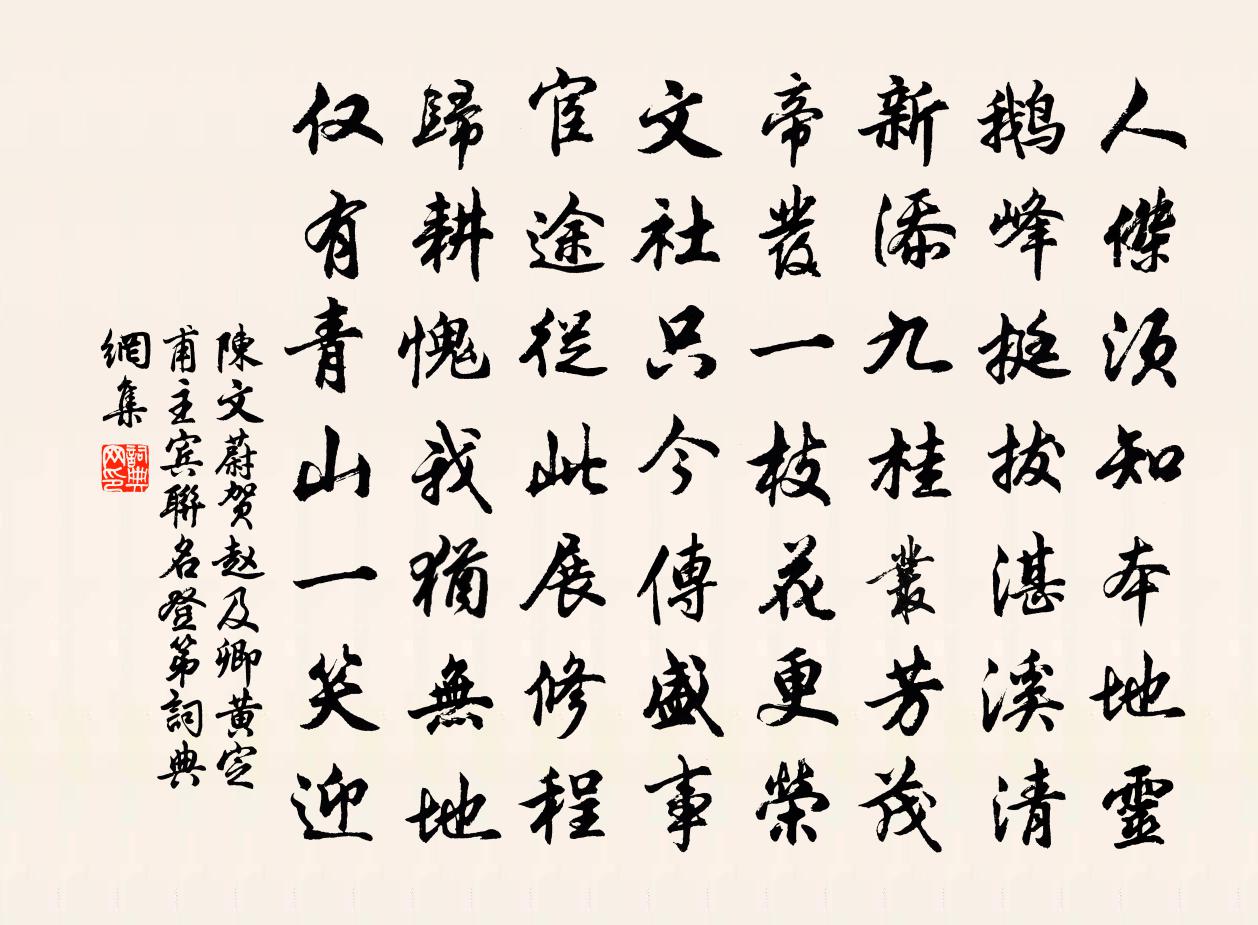 人傑須知本地靈
鵝峰挺拔湛溪清
新添九桂叢芳茂
帝發一枝花更榮
文社只今傳盛事
宦途從此展修程
歸耕愧我猶無地
仅有青山一笑迎
陳文蔚贺赵及卿黃定
甫主宾聯名登第詞典
網集
詞典网印